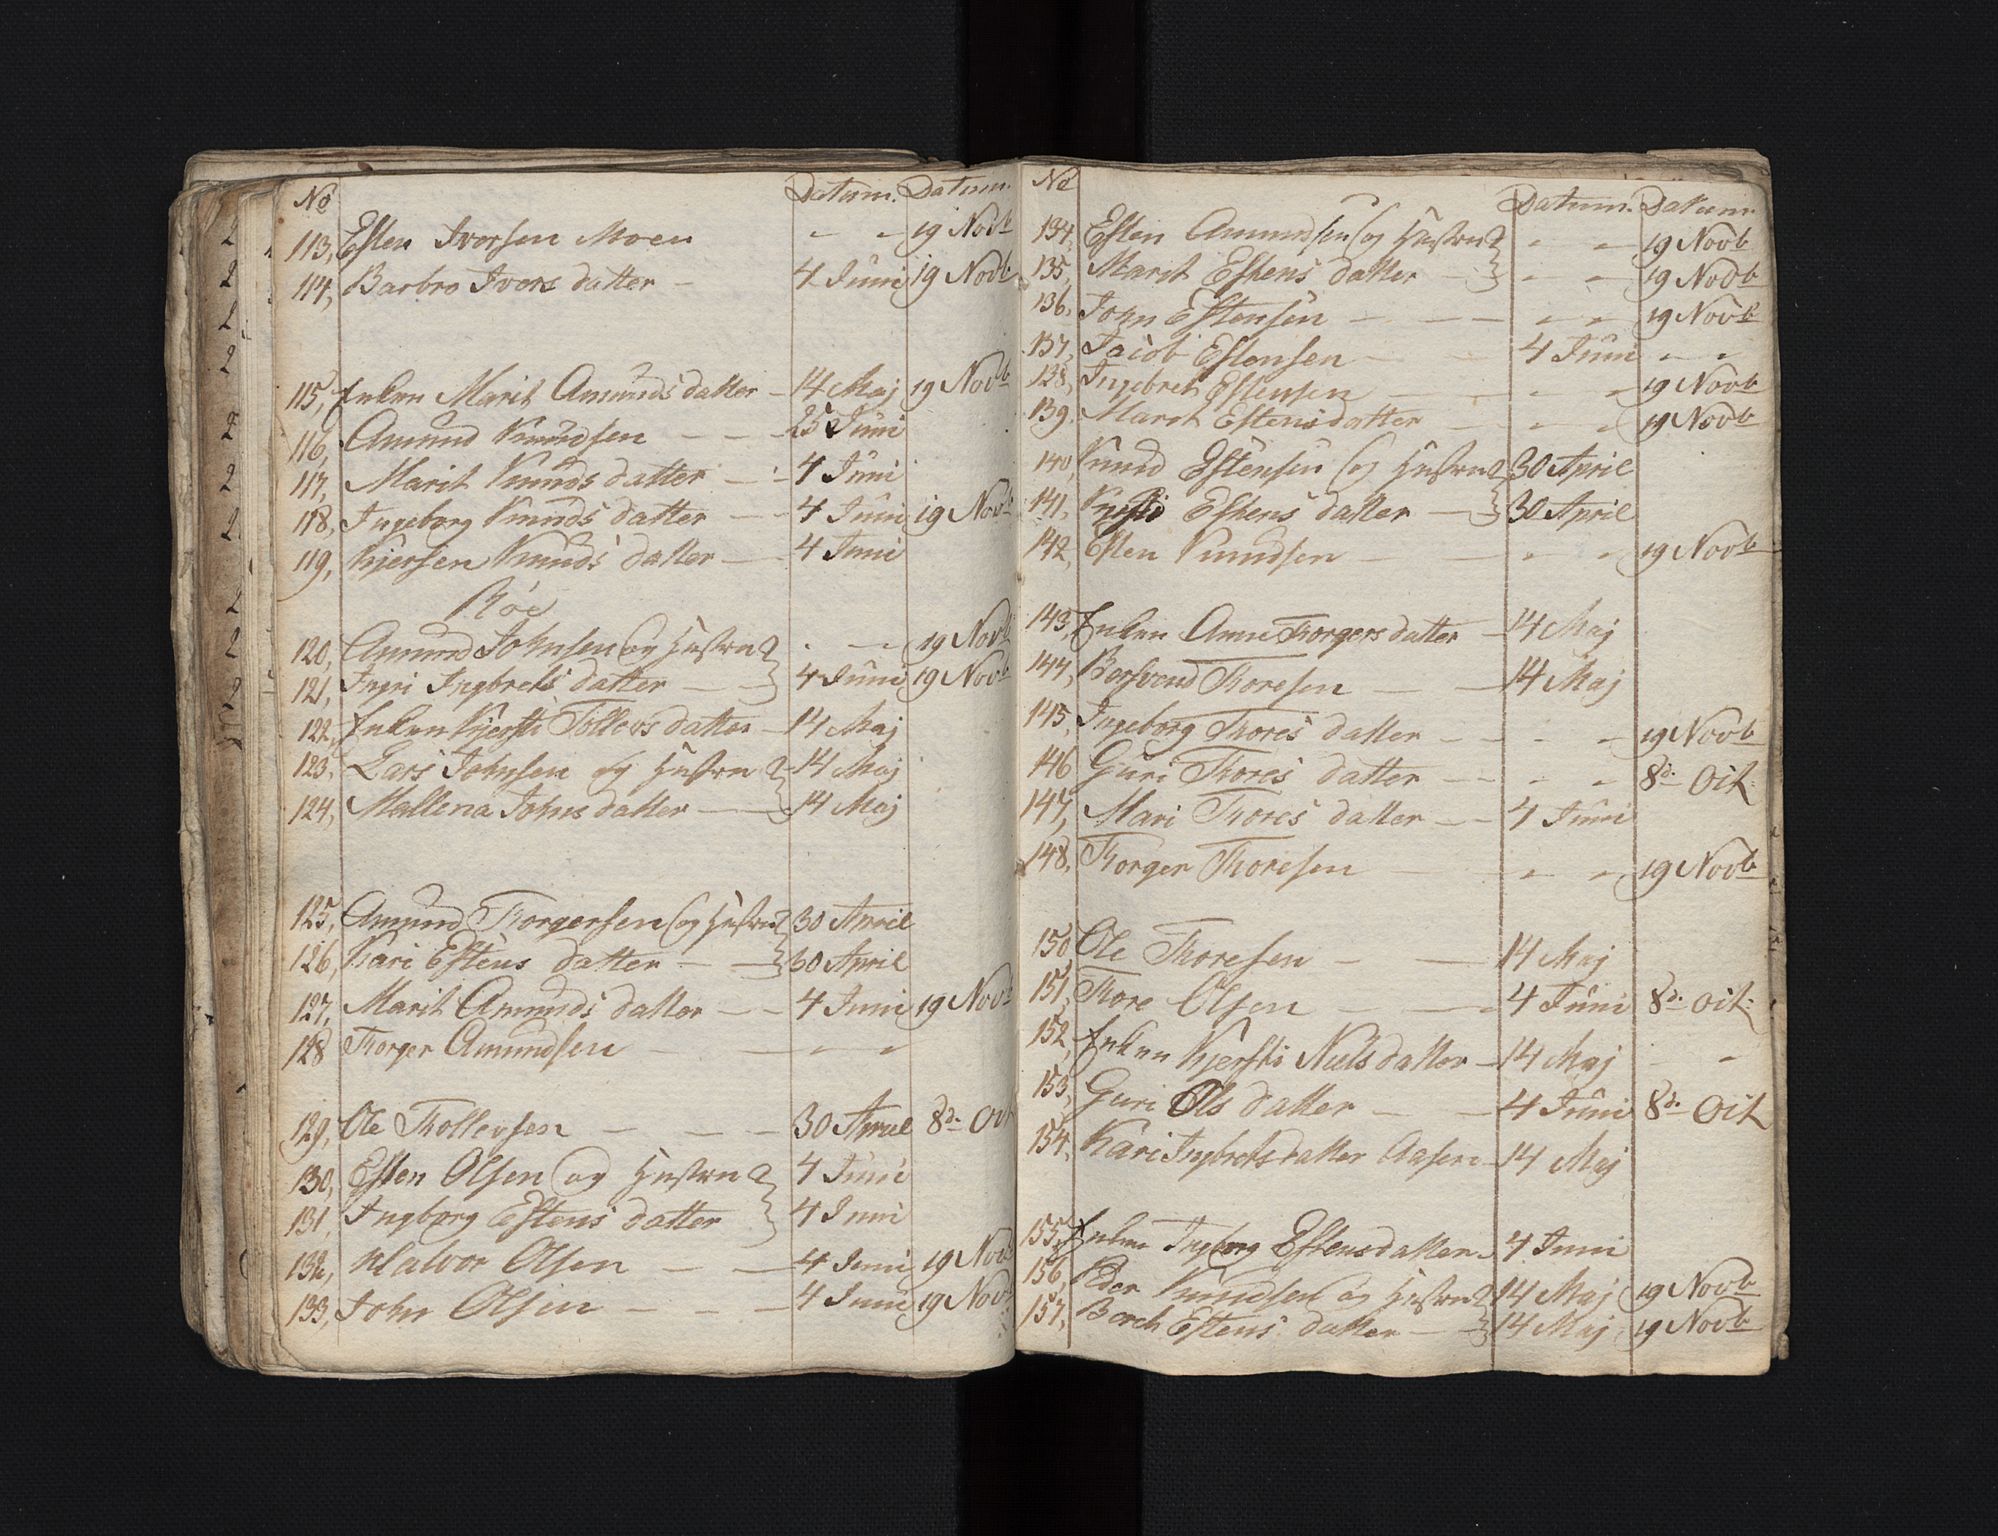 No Datum. Datum.
113, Esten Iversen Moen - - 19 Novb
114, Barbro Ivers datter - 4 Juni 19 Novb
115, Enken Marit Amunds datter - 14 Maj 19 Novb
116, Amund Knudsen - - - 25 Juni
117, Marit Knuds datter - - 4 Juni
118, Ingeborg Knuds datter - - 4 Juni 19 Novb
119, Kjersten Knuds datter - - 4 Juni
Röe
120, Amund Johnsen og Hustru - - 19 Novb
121, Ingri Ingbrets datter - - 4 Juni 19 Novb
122, Enken Kjersti Tollevs datter - 14 Maj
123, Lars Johnsen og Hustru - 14 Maj
124, Mallena Johns datter - - 14 Maj
125, Amund Torgersen og Hustru 30 April
126, Kari Estens datter - - 30 April
127, Marit Amunds datter - - 4 Juni 19 Novb
128 Torger Amundsen - - - -
129, Ole Tollevsen - - - 30 April 8d. Oct
130, Esten Olsen og Hustru 4 Juni
131, Ingborg Estens datter 4 Juni
132, Halvor Olsen - - - 4 Juni 19 Novb
133, John Olsen - - - 4 Juni 19 Novb
No Datum. Datum
134, Esten Amundsen og Hustru - - 19 Novb
135, Marit Estens datter - - - 19 Novb
136, John Estensen - - - - - 19 Novb
137, Jacob Estensen - - 4 Juni - -
138, Ingebret Estensen - - - - 19 Novb
139. Marit Estens datter - - - - 19 Novb
140, Knud Estensen og Hustru 30 April
141, Estens datter - 30 April
142, Esten Knudsen - - - - 19 Novb
143, Enken Anne Torgers datter - 14 Maj
144, Bersvend Toresen - - 14 Maj
145, Ingeborg Tores datter - - - - 19 Novb
146 Guri Tores datter - - - - 8d. Oct.
147, Mari Tores datter - - 4 Juni
148, Torger Toresen - - - - 19 Novb
150 Ole Toresen - - 14 Maj -
151, Tore Olsen - - 4 Juni 8d. Oct.
152, Enken Kjersti Niels datter - 14 Maj - -
153, Guri Ols datter - - 4 Juni 8d. Oct
154, Kari Ingbrets datter Aasen - 14 Maj
155, Enken Ingborg Estens datter - 4 Juni
156, Peder Knudsen og Hustru 14 Maj 19 Novb
157, Estens datter - - 14 Maj 19 Novb